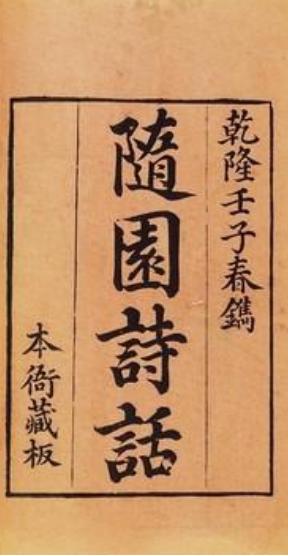 乾隆壬子春鐫
隨園詩話
本衙藏板